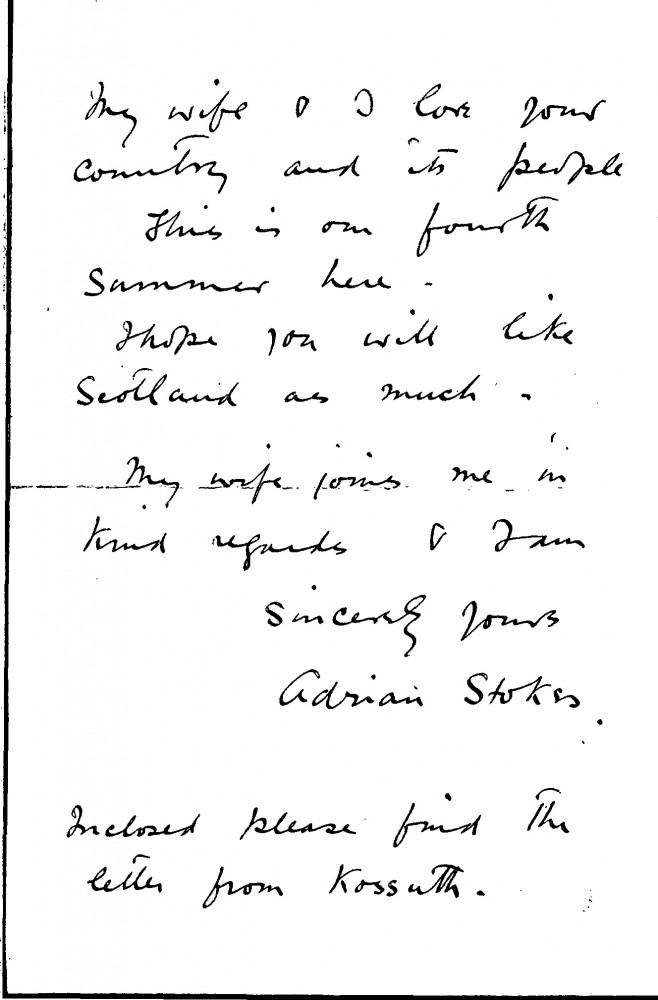 My wife & I love your
country and its people
This is our fourth
Summer here.
I hope you will like
Scotland as much.
My wife joins me in
kind regards & I am
Sincerely yours
Adrian Stokes.
Inclosed please find the
letter from Kossuth.